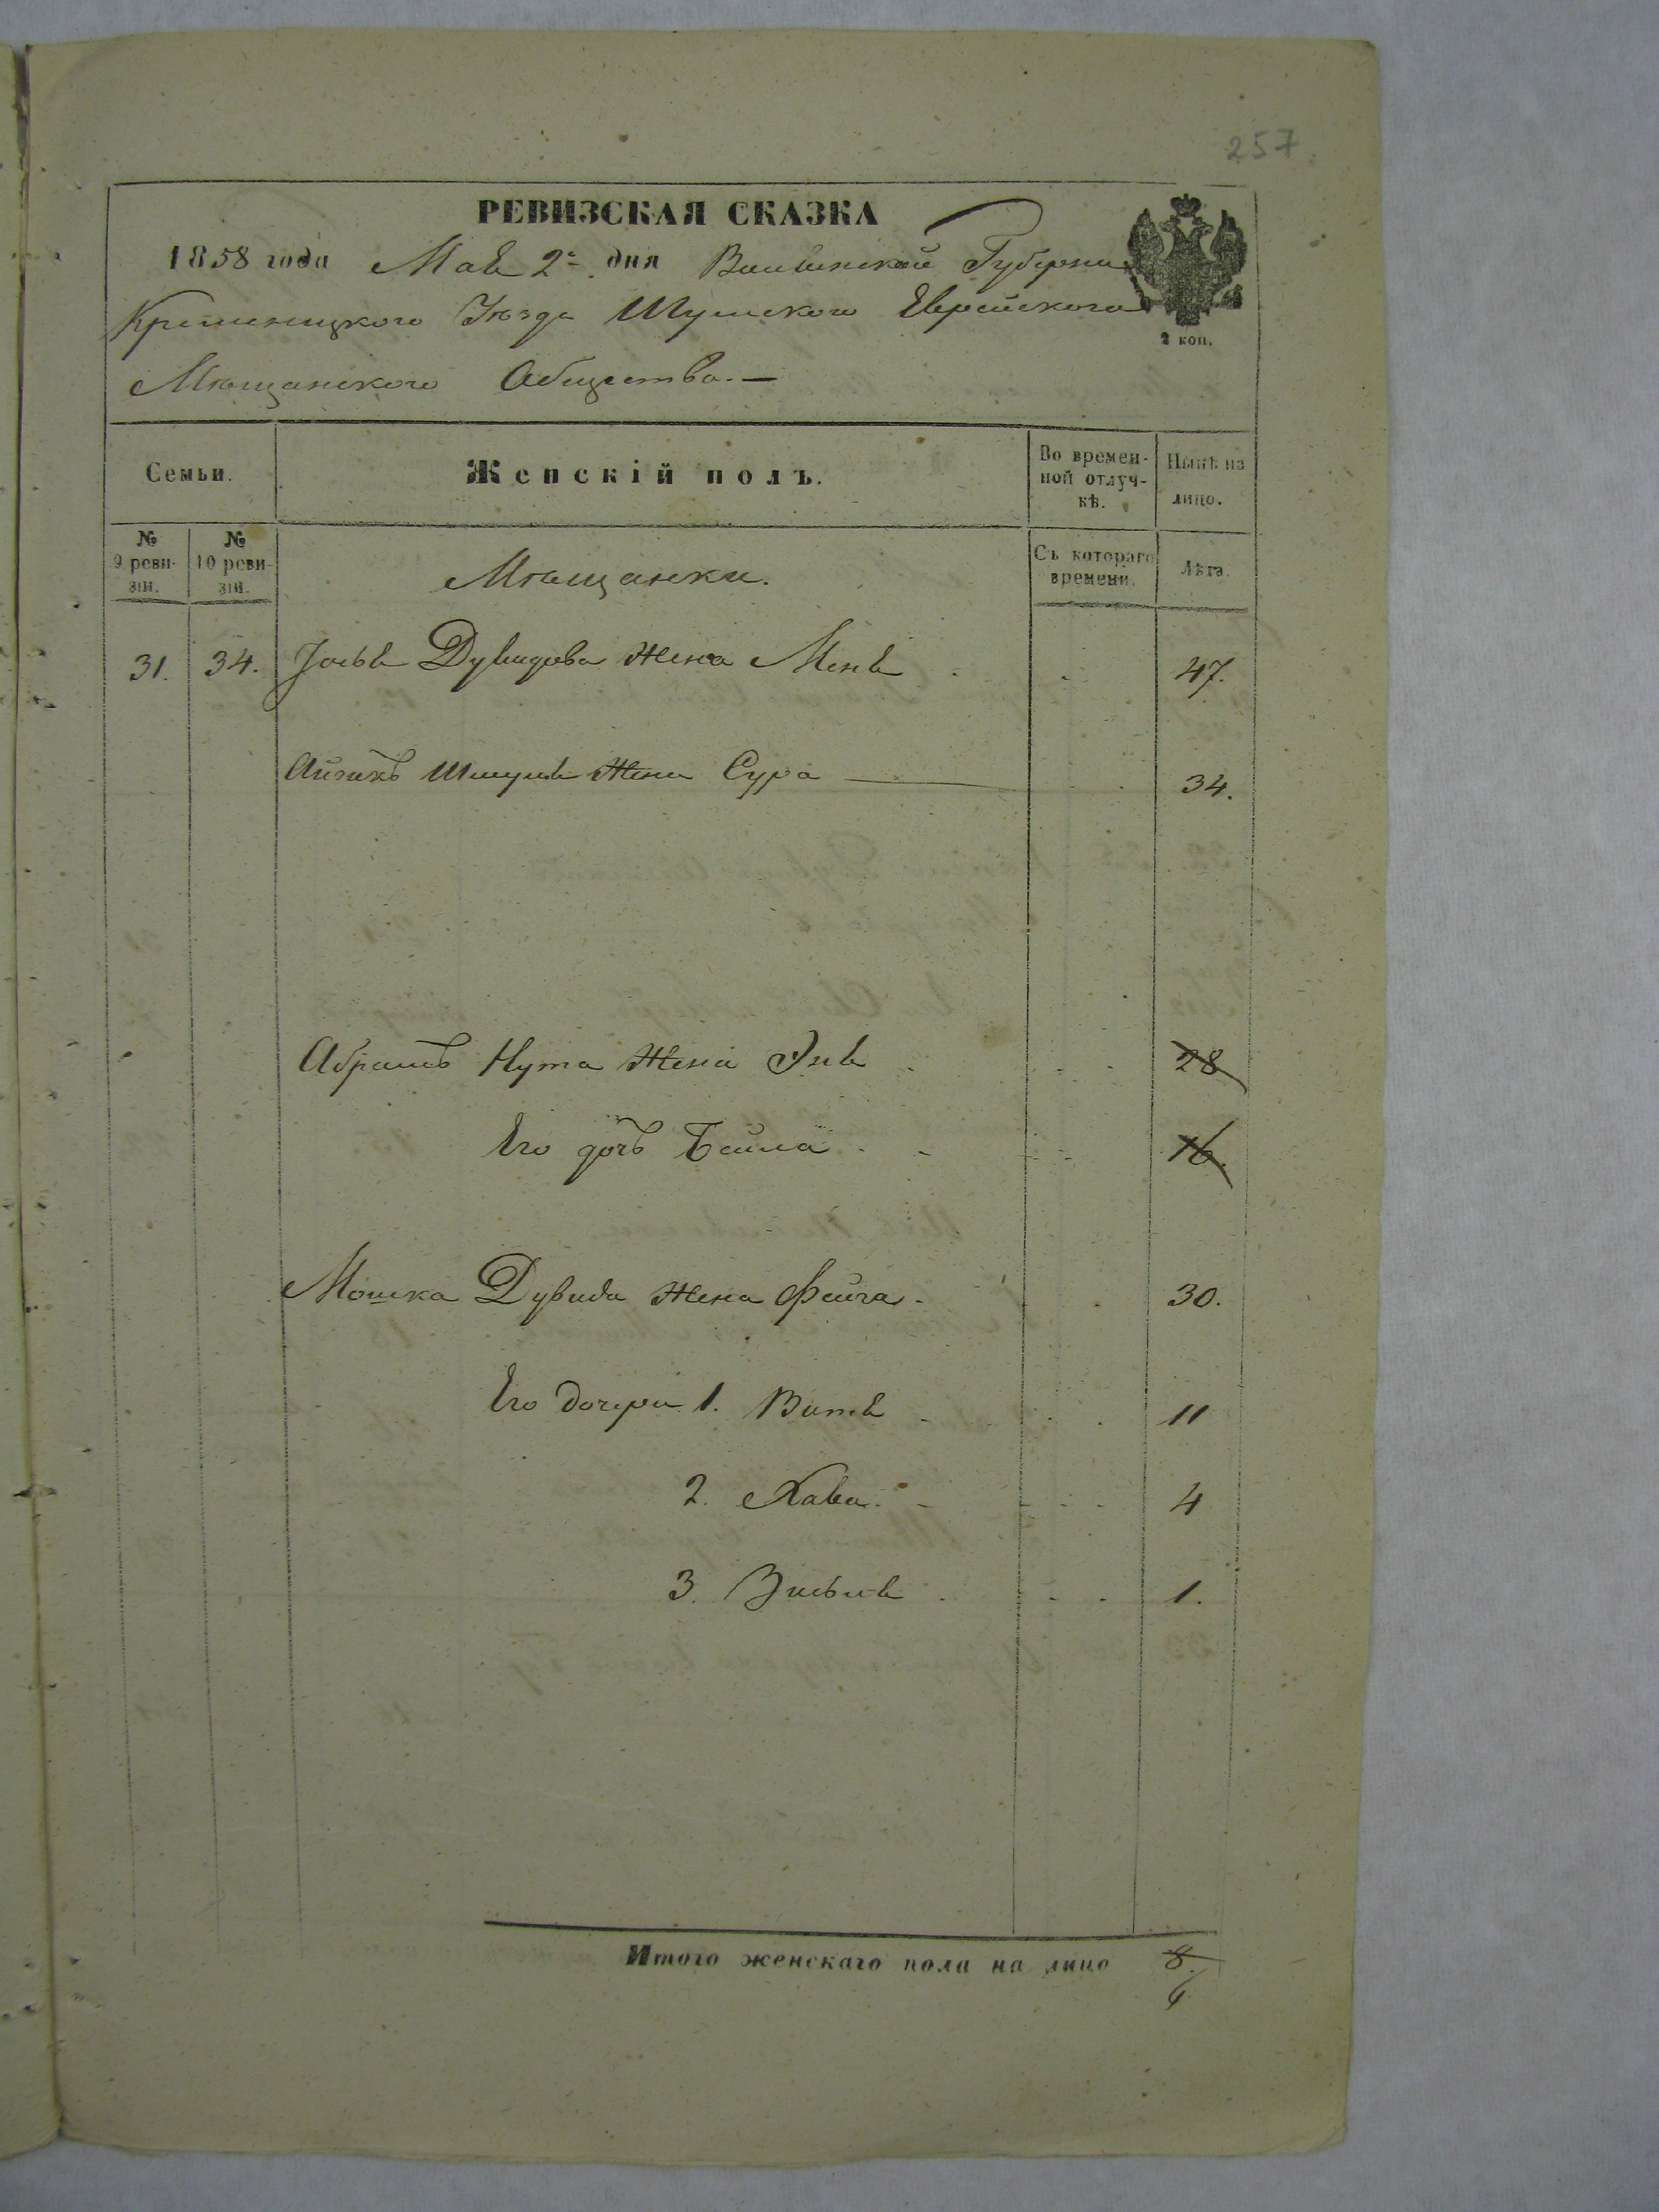 257
РЕВИЗСКАЯ СКАЗКА
1858 года Мая 2го дня Волынской Губернии
Кременецкого Уѣзда Шумского Еврейского
2 коп.
Мѣщанского Общества.—
Семьи. Женскій полъ. Во времен-ной отлуч-кѣ. Нынѣ на лицо.
№ 9 реви-зіи. № 10 реви-зіи. Съ котораго времени. Лѣта.
Мѣщанки.
31. 34. Іосья Дувидова жена Меня 47.
Айзикъ Шмуля жена Сура 34.
Абрамъ Нута жена Эня 28
Его дочь Бейла 16.
Мошка Дувида жена Фейга 30.
Его дочери 1. Витя 11
2. Хава 4
3. Зисься 1.
Итого женскаго пола на лицо 8.
6